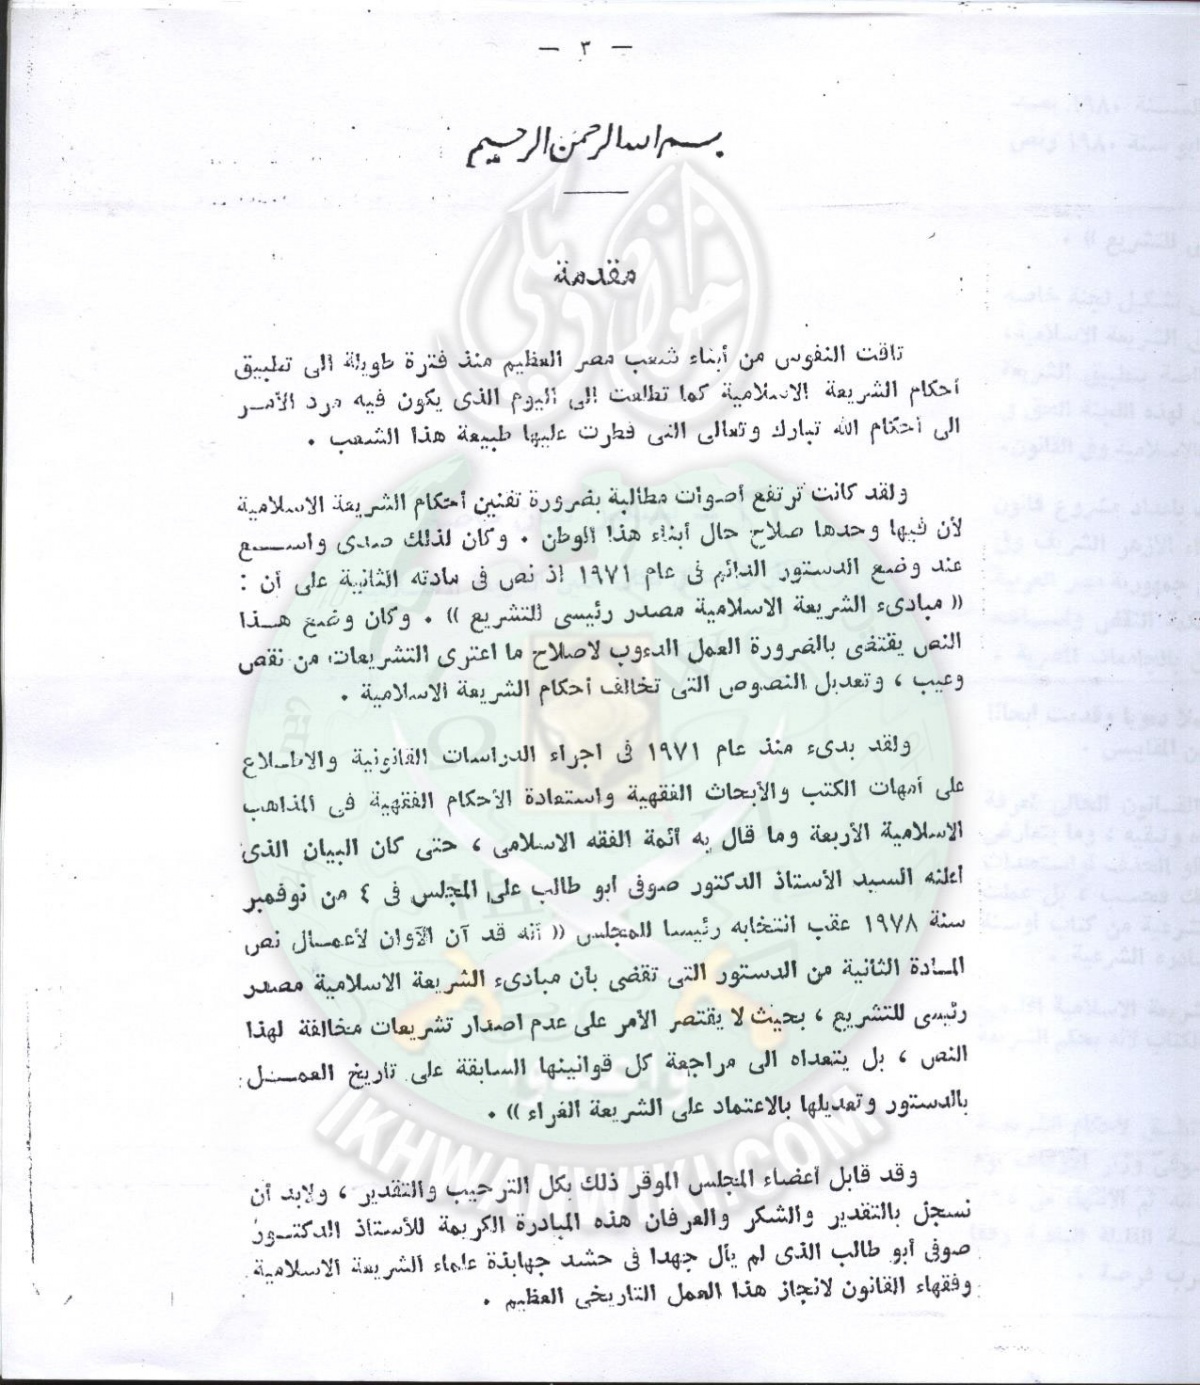 — ٣ —
بسم الله الرحمن الرحيم
مقدمة
تاقت النفوس من أبناء شعب مصر العظيم منذ فترة طويلة الى تطبيق
أحكام الشريعة الاسلامية كما تطلعت الى اليوم الذى يكون فيه مرد الأمر
الى أحكام الله تبارك وتعالى التى فطرت عليها طبيعة هذا الشعب .
ولقد كانت ترتفع أصوات مطالبة بضرورة تقنين أحكام الشريعة الاسلامية
لأن فيها وحدها صلاح حال أبناء هذا الوطن . وكان لذلك صدى واسع
عند وضع الدستور الدائم فى عام ١٩٧١ اذ نص فى مادته الثانية على أن :
« مبادىء الشريعة الاسلامية مصدر رئيسى للتشريع » . وكان وضع هذا
النص يقتضى بالضرورة العمل الدءوب لاصلاح ما اعترى التشريعات من نقص
وعيب ، وتعديل النصوص التى تخالف أحكام الشريعة الاسلامية .
ولقد بدىء منذ عام ١٩٧١ فى اجراء الدراسات القانونية والاطلاع
على أمهات الكتب والأبحاث الفقهية واستعادة الأحكام الفقهية فى المذاهب
الاسلامية الأربعة وما قال به أئمة الفقه الاسلامى ، حتى كان البيان الذى
أعلنه السيد الأستاذ الدكتور صوفى ابو طالب على المجلس فى ٤ من نوفمبر
سنة ١٩٧٨ عقب انتخابه رئيسا للمجلس « أنه قد آن الآوان لأعمال نص
المادة الثانية من الدستور التى تقضى بأن مبادىء الشريعة الاسلامية مصدر
رئيسى للتشريع ، بحيث لا يقتصر الأمر على عدم اصدار تشريعات مخالفة لهذا
النص ، بل يتعداه الى مراجعة كل قوانينها السابقة على تاريخ العمل
بالدستور وتعديلها بالاعتماد على الشريعة الغراء » .
وقد قابل أعضاء المجلس الموقر ذلك بكل الترحيب والتقدير ، ولابد أن
نسجل بالتقدير والشكر والعرفان هذه المبادرة الكريمة للأستاذ الدكتور
صوفى أبو طالب الذى لم يأل جهدا فى حشد جهابذة علماء الشريعة الاسلامية
وفقهاء القانون لانجاز هذا العمل التاريخى العظيم .
إخوان ويكي
وأعدوا
IKHWANWIKI.COM